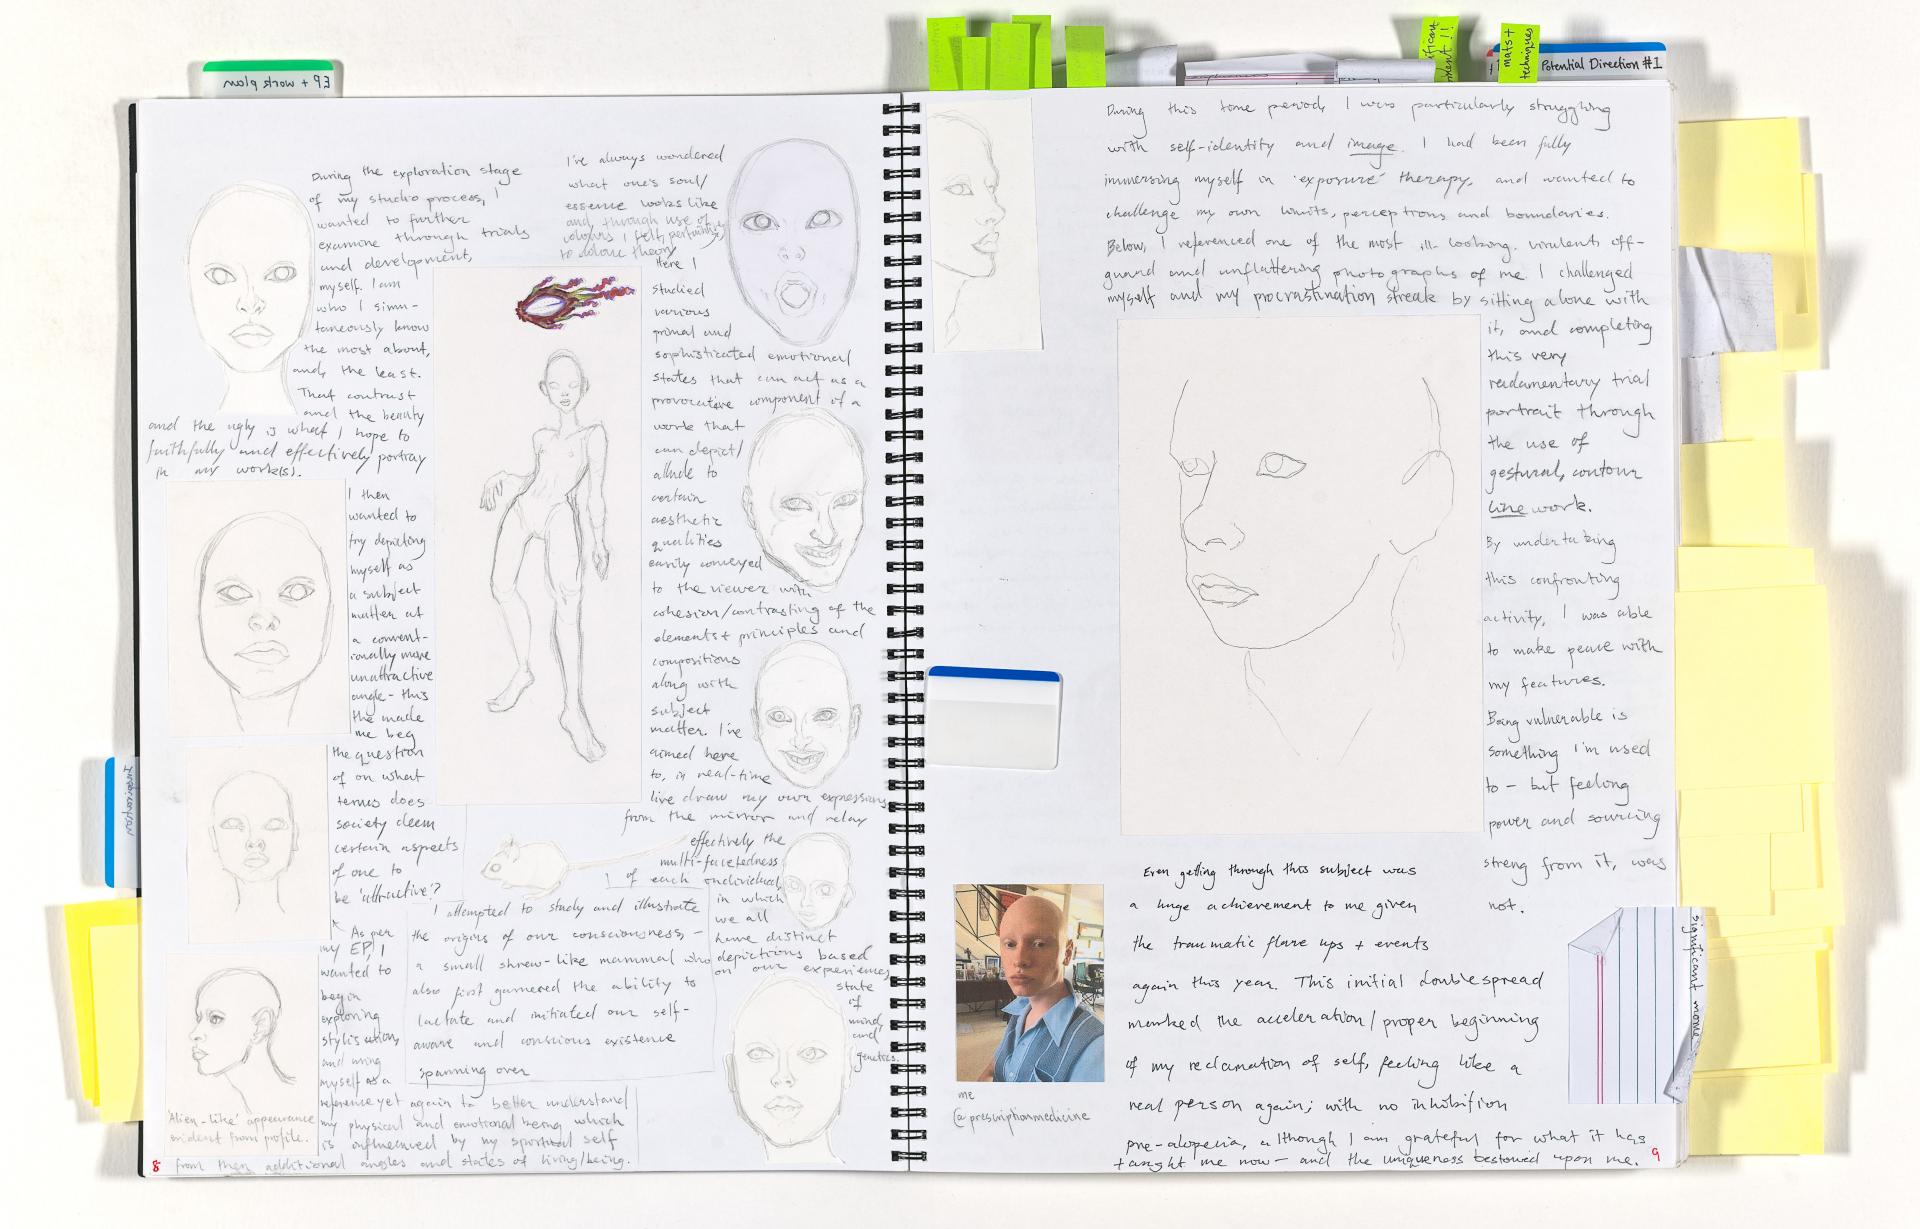 EP + work plan
ificant
ment !!
mats +
techniques
Potential Direction #1
During the exploration stage
of my studio process, I
wanted to further
examine through trials
and development,
myself. I am
who I simu-
taneously know
the most about,
and, the least.
That contrast
and the beauty
and the ugly is what I hope to
faithfully and effectively portray
in my work(s).
I then
wanted to
try depicting
myself as
a subject
matter at
a convent-
ionally more
unattractive
angle - this
the made
me beg
the question
of on what
terms does
society deem
certain aspects
of one to
be 'attractive'?
As per
my EP, I
wanted to
begin
exploring
stylisations
and using
myself as a
reference yet again to better understand
my physical and emotional being which
is influenced by my spiritual self
from then additional angles and states of living/being.
'Alien-like' appearance
evident from profile.
8
I've always wondered
what one's soul/
essence looks like
and through use of
colours I felt pertained
to colour theory
Here I
studied
various
primal and
sophisticated emotional
states that can act as a
provocative component of a
work that
can depict/
allude to
certain
aesthetic
qualities
easily conveyed
to the viewer with
cohesion/contrasting of the
elements + principles and
compositions
along with
subject
matter. I've
aimed here
to, in real-time
live draw my own expressions
from the mirror and relay
effectively the
multi-facetedness
of each individual,
in which
we all
have distinct
depictions based
on our experiences
state
of
mind,
and
genetics.
I attempted to study and illustrate
the origins of our consciousness, -
a small shrew-like mammal who
also first garnered the ability to
lactate and initiated our self-
aware and conscious existence
spanning over
During this time period, I was particularly struggling
with self-identity and image. I had been fully
immersing myself in 'exposure' therapy, and wanted to
challenge my own limits, perceptions and boundaries.
Below, I referenced one of the most ill-looking, virulent, off-
guard and unflattering photographs of me. I challenged
myself and my procrastination streak by sitting alone with
it, and completing
this very
rudamentary trial
portrait through
the use of
gestural, contour
line work.
By undertaking
this confronting
activity, I was able
to make peace with
my features.
Being vulnerable is
something I'm used
to - but feeling
power and sourcing
streng from it, was
not.
Even getting through this subject was
a huge achievement to me given
the traumatic flare ups + events
again this year. This initial doublespread
marked the acceleration/proper beginning
of my reclamation of self, feeling like a
real person again; with no inhibition
pre-alopecia, although I am grateful for what it has
taught me now - and the uniqueness bestowed upon me.
me
@prescriptionmedicine
significant mome
9